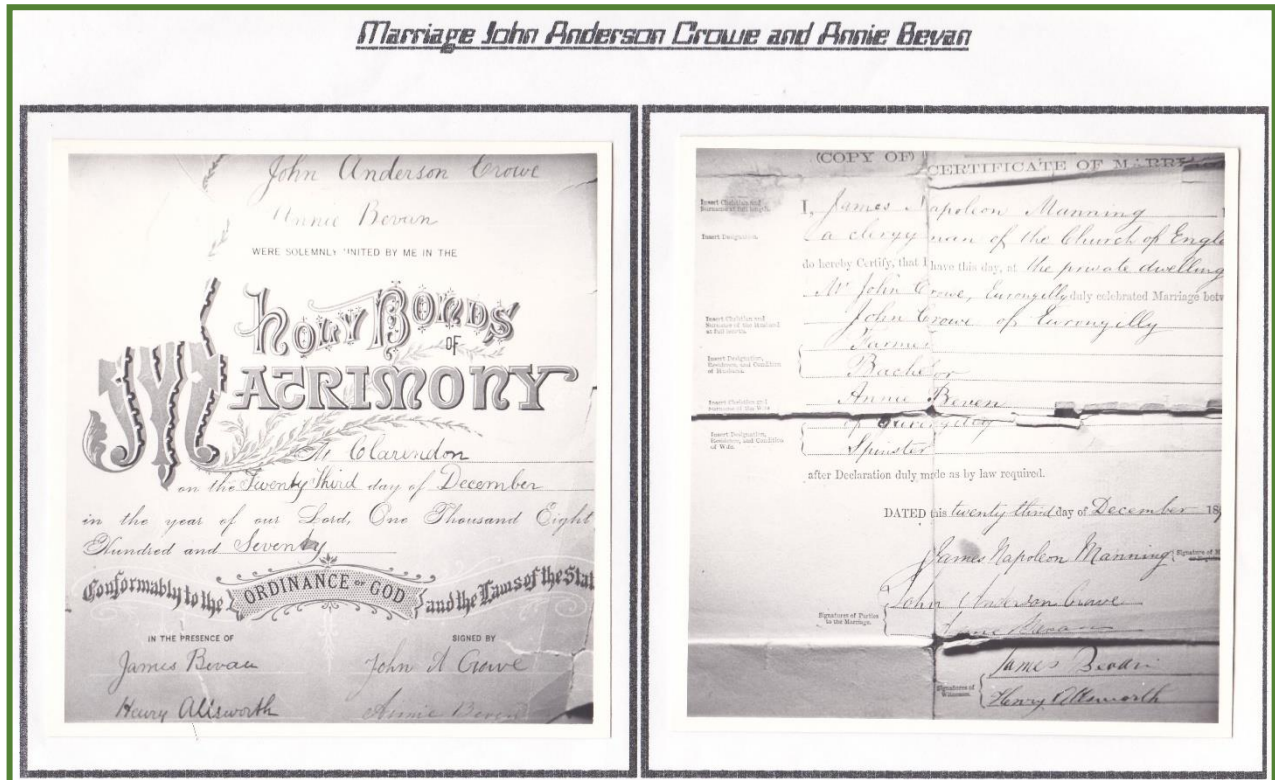 Marriage John Anderson Crowe and Annie Bevan
John Anderson Crowe
Annie Bevan
WERE SOLEMNLY UNITED BY ME IN THE
HOLY BONDS
OF
MATRIMONY
At Clarendon
on the Twenty Third day of December
in the year of our Lord, One Thousand Eight
Hundred and Seventy
Conformably to the ORDINANCE OF GOD and the Laws of the Stat
IN THE PRESENCE OF SIGNED BY
James Bevan John A Crowe
Henry Allsworth Annie Beven
(COPY OF) CERTIFICATE OF MARR
Insert Christian and
Surname at full length.
I, James Napoleon Manning
Insert Designation.
a clergyman of the Church of Engl
do hereby Certify, that I have this day, at the private dwelling
Mr John Crowe, Eurongilly duly celebrated Marriage betw
Insert Christian and
Surname of the Husband
at full length.
John Crowe of Eurongilly
Farmer
Insert Designation,
Residence, and Condition
of Husband.
Bachelor
Insert Christian and
Surname of the Wife
Annie Beven
of
Insert Designation,
Residence, and Condition
of Wife.
Spinster
after Declaration duly made as by law required.
DATED this twenty third day of December 18
James Napoleon Manning Signature of
John Anderson Crowe
Signatures of Parties
to the Marriage.
James Bevan
Signatures of
Witnesses.
Henry Allsworth